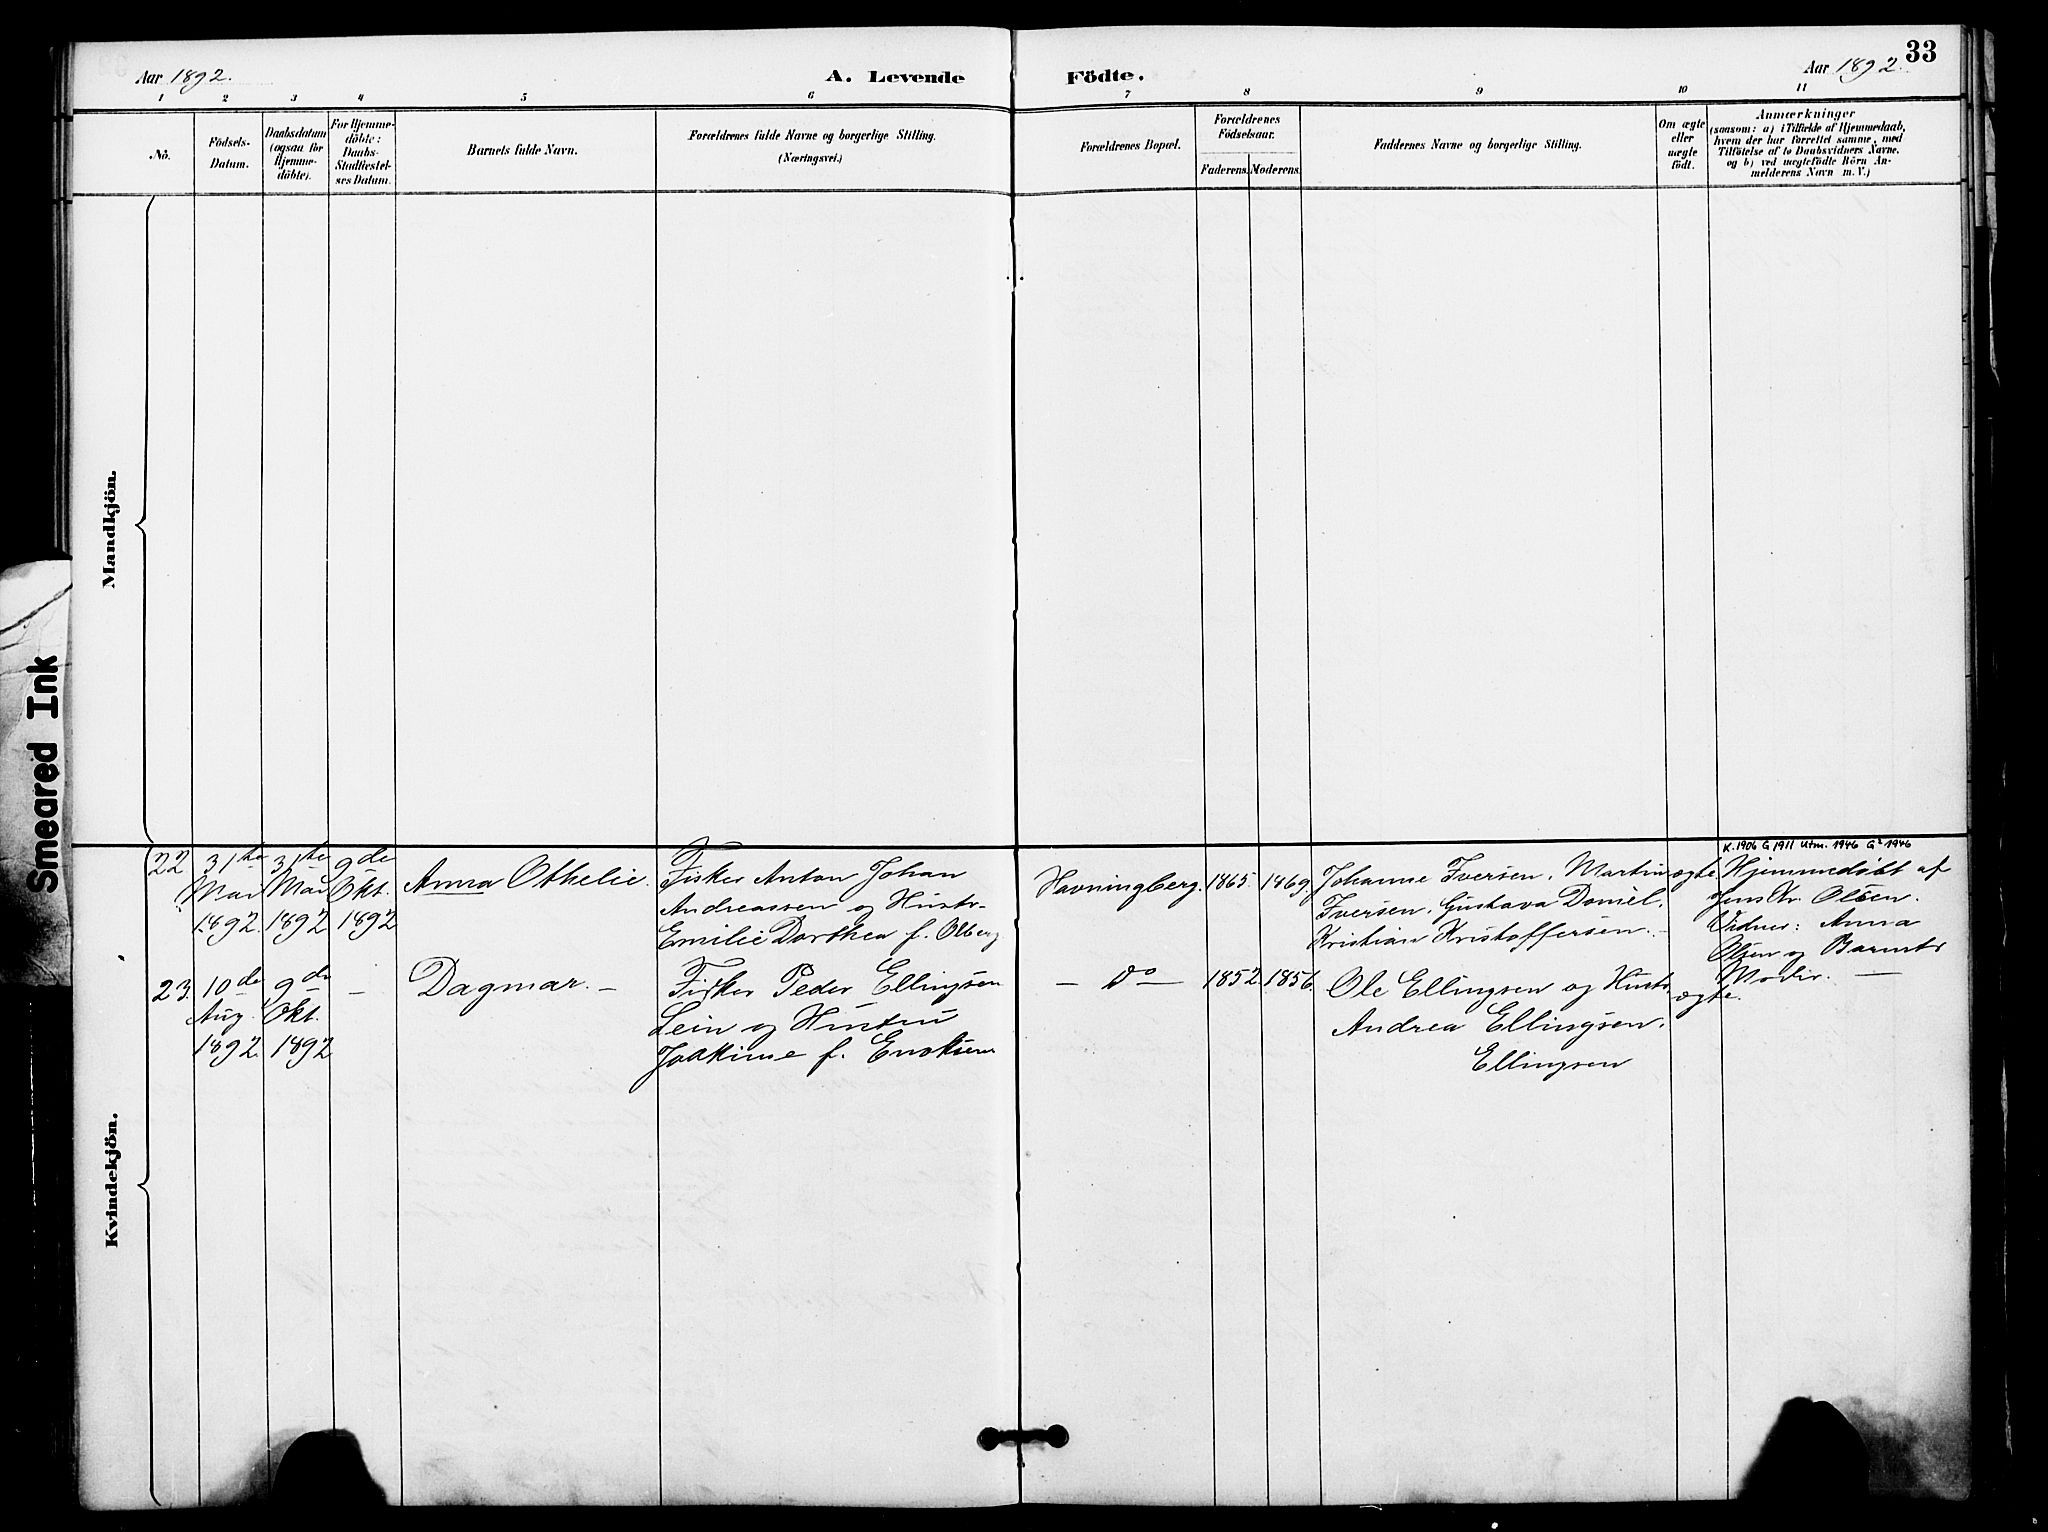 33
Aar 1892.
A. Levende
Födte.
Aar 1892.
1 2 3 4 5 6 7 8 9 10 11
No.
Födsels-
Datum.
Daabsdatum
(ogsaa for
Hjemme-
döbte).
For Hjemme-
döbte:
Daabs-
Stadfæstel-
ses Datum.
Barnets fulde Navn.
Forældrenes fulde Navne og borgerlige Stilling.
(Næringsvei.)
Forældrenes Bopæl.
Forældrenes
Födselsaar.
Faderens. Moderens.
Faddernes Navne og borgerlige Stilling.
Om ægte
eller
uægte
født.
Anmærkninger
(saasom: a) i Tilfælde af Hjemmedaab,
hvem der har forrettet samme, med
Tilföielse af to Daabsvidners Navne.
og b) ved uægtefödte Börn An-
melderens Navn m. V.)
Mandkjön.
Smeared Ink
Kvindekjön.
22
31te
Mai
1892.
31te
Mai
1892
9de
Okt.
1892
Anna Othelie.
Fisker Anton Johan
Andreassen og Hustr.
Emilie Dorthea f. Olberg
Havningberg.
1865.
1869.
Johanne Iversen. Martin
Iversen. Gustava Daniel.
Kristian Kristoffersen. -
ægte
K.1906 G 1911 Utm. 1946 G² 1946
Hjemmedøbt af
Jens Kr. Olsen.
Vidner: Anna
Olsen og Barnets
Moder. —
23.
10de
Aug.
1892.
9de
Okt.
1892
—
Dagmar. —
Fisker Peder Ellingsen
Lein og Hustru
Joakime f. Enoksen
— Do —
1852.
1856.
Ole Ellingsen og Hustr.
Andrea Ellingsen.
Ellingsen
ægte.